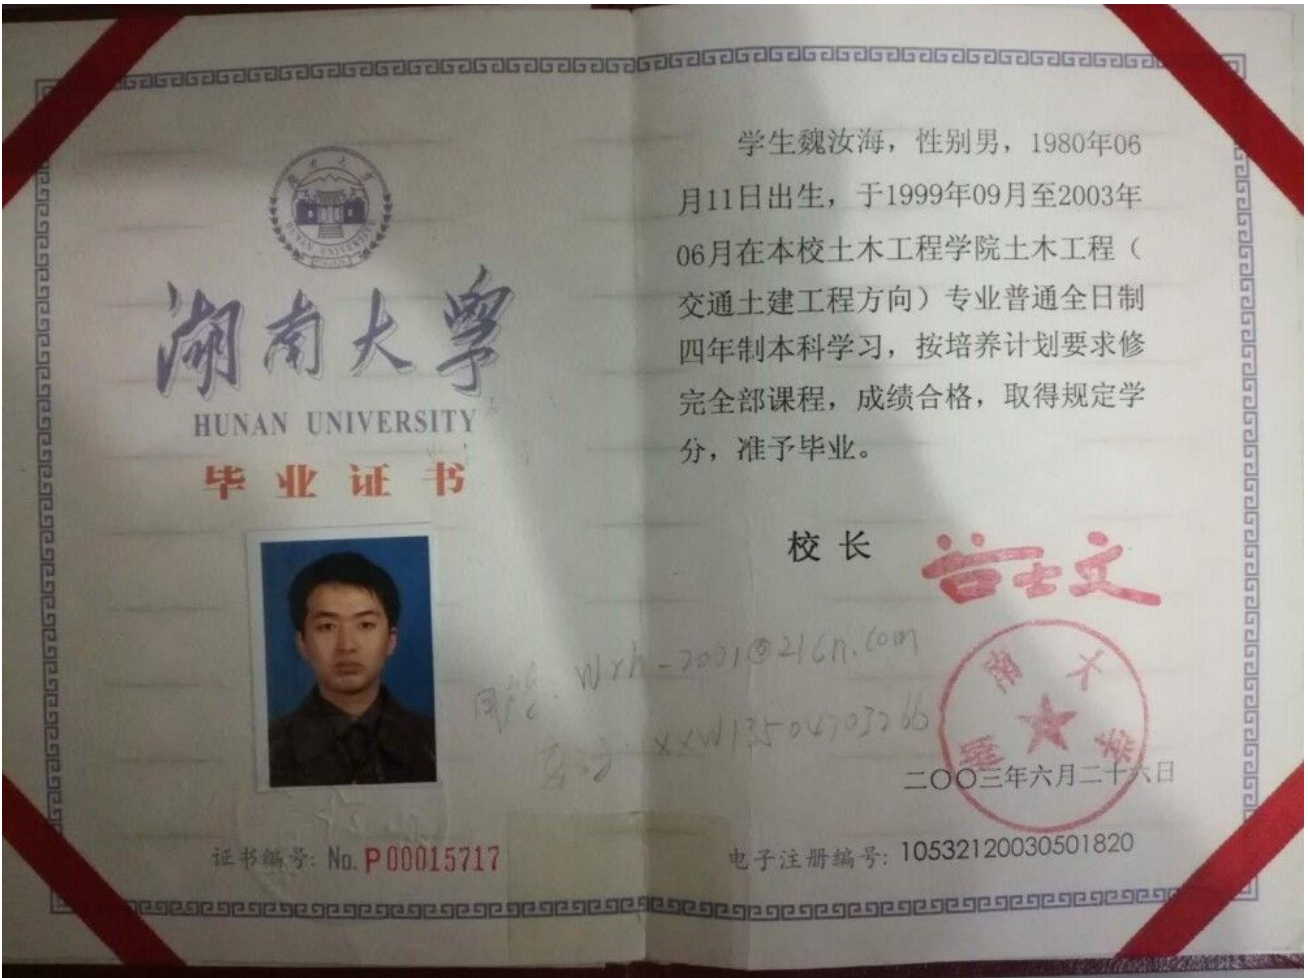 湖南大学
HUNAN UNIVERSITY
湖南大学
HUNAN UNIVERSITY
毕业证书
证书编号: No. P00015717
学生魏汝海，性别男，1980年06
月11日出生，于1999年09月至2003年
06月在本校土木工程学院土木工程（
交通土建工程方向）专业普通全日制
四年制本科学习，按培养计划要求修
完全部课程，成绩合格，取得规定学
分，准予毕业。
校长
谷士文
wrh-2001@21cn.com
xxw13504703266
湖南大学
二〇〇三年六月二十六日
电子注册编号: 10532120030501820